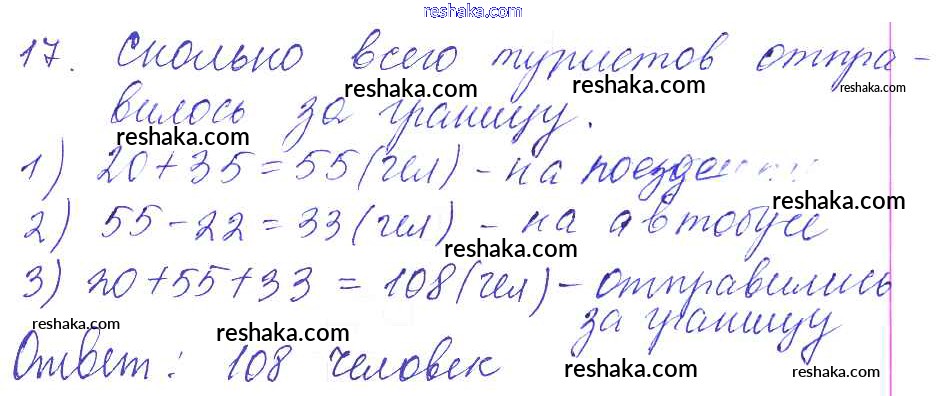 reshaka.com
17. Сколько всего туристов отпра-
reshaka.com reshaka.com reshaka.com reshaka.com
вилось за границу.
reshaka.com reshaka.com
1) 20+35=55(чел) - на поезде
reshaka.com
2) 55-22=33(чел) - на автобусе
reshaka.com reshaka.com
3) 20+55+33=108(чел) - отправились
за границу
reshaka.com reshaka.com reshaka.com
Ответ: 108 человек
reshaka.com reshaka.com